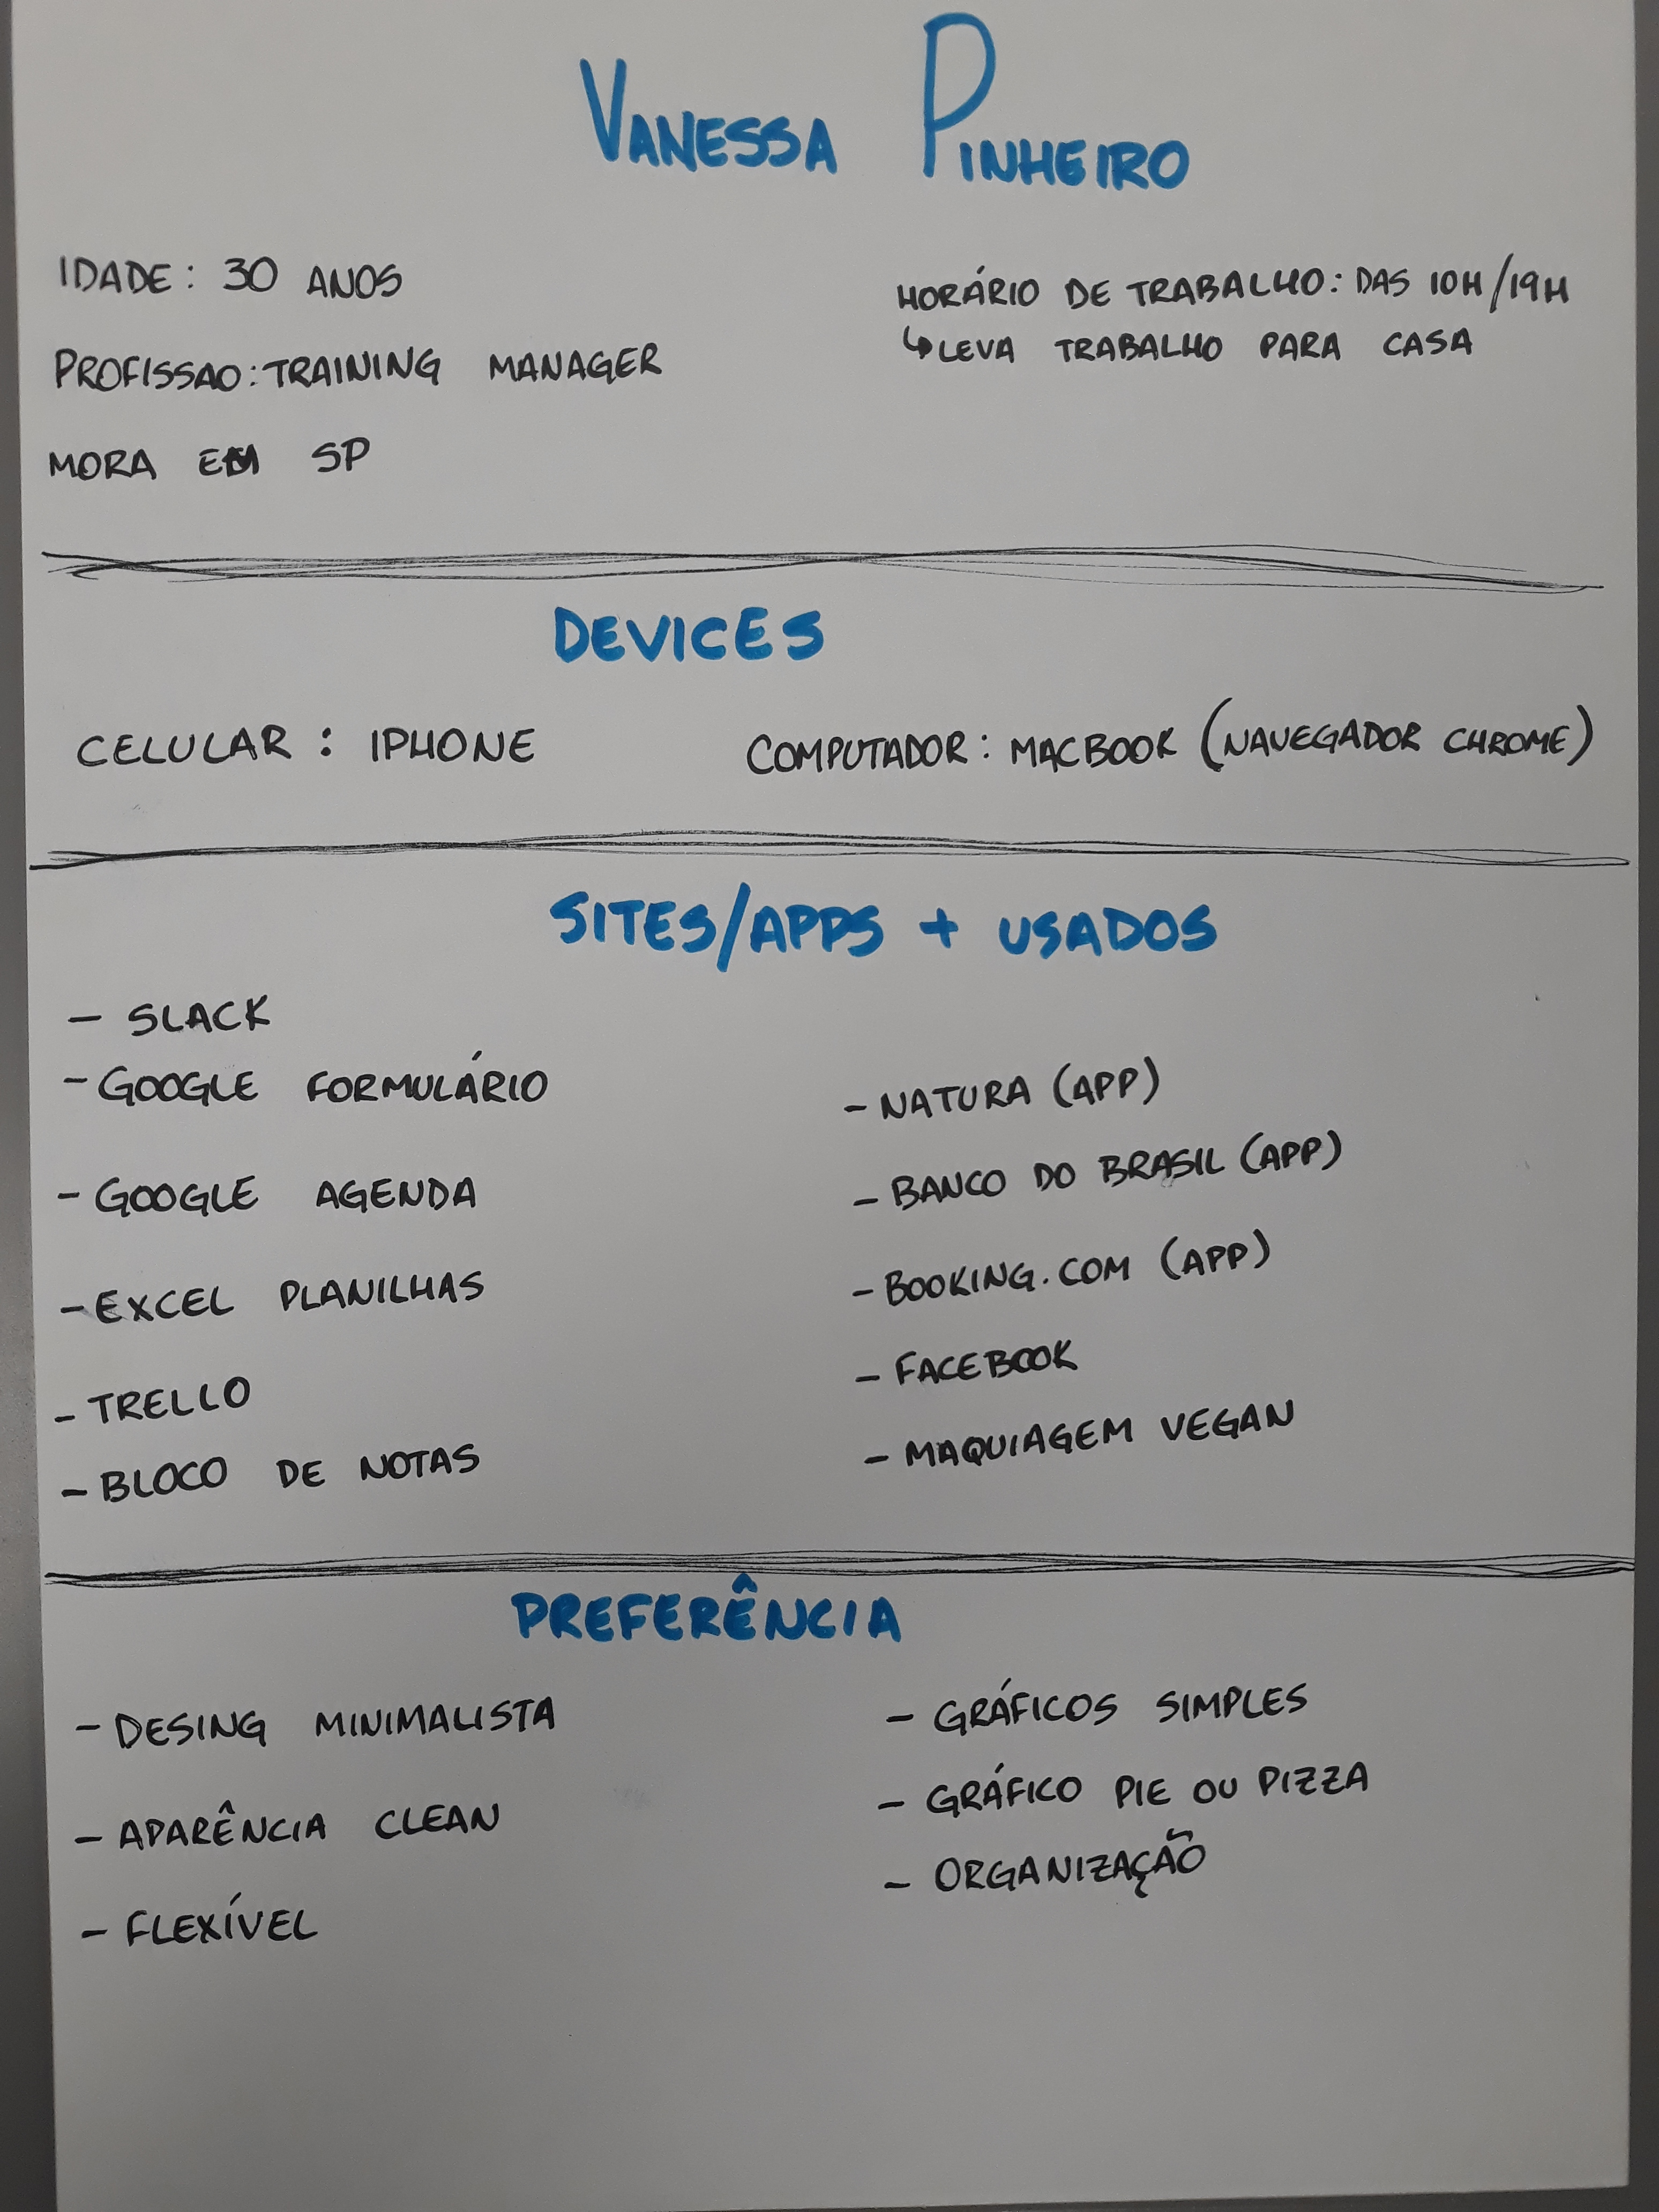 VANESSA PINHEIRO
IDADE: 30 ANOS
PROFISSAO: TRAINING MANAGER
MORA EM SP
HORÁRIO DE TRABALHO: DAS 10H/19H
↳ LEVA TRABALHO PARA CASA
DEVICES
CELULAR: IPHONE
COMPUTADOR: MACBOOK (NAVEGADOR CHROME)
SITES/APPS + USADOS
- SLACK
- GOOGLE FORMULÁRIO
- GOOGLE AGENDA
- EXCEL PLANILHAS
- TRELLO
- BLOCO DE NOTAS
- NATURA (APP)
- BANCO DO BRASIL (APP)
- BOOKING.COM (APP)
- FACEBOOK
- MAQUIAGEM VEGAN
PREFERÊNCIA
- DESING MINIMALISTA
- APARÊNCIA CLEAN
- FLEXÍVEL
- GRÁFICOS SIMPLES
- GRÁFICO PIE OU PIZZA
- ORGANIZAÇÃO